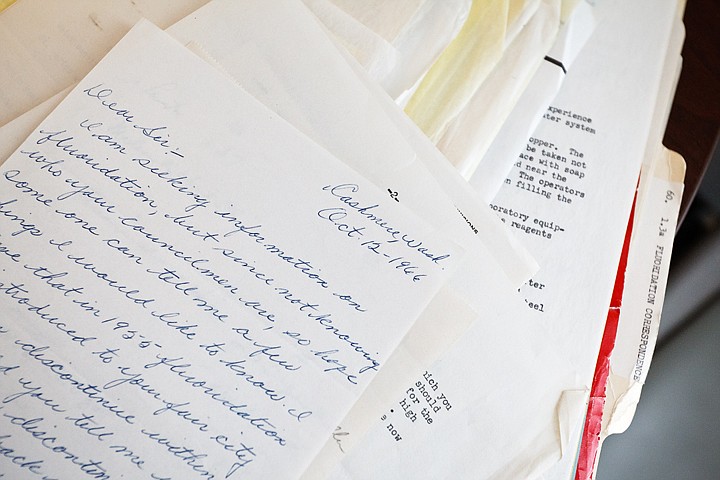 Cashmere, Wash.
Oct. 12-1966
Dear Sir:-
I am seeking information on
fluoridation, but since not knowing
who your councilmen are, so hope
some one can tell me a few
things I would like to know. I
me that in 1955 fluoridation
introduced to your fair city
discontinue within
d you tell me
discontin
back
-2-
xperience
ter system
opper. The
be taken not
ace with soap
d near the
The operators
n filling the
oratory equip-
e reagents
ter
eel
ich you
should
for the
high
now
60. 1.3a FLUORIDATION CORRESPONDENCE